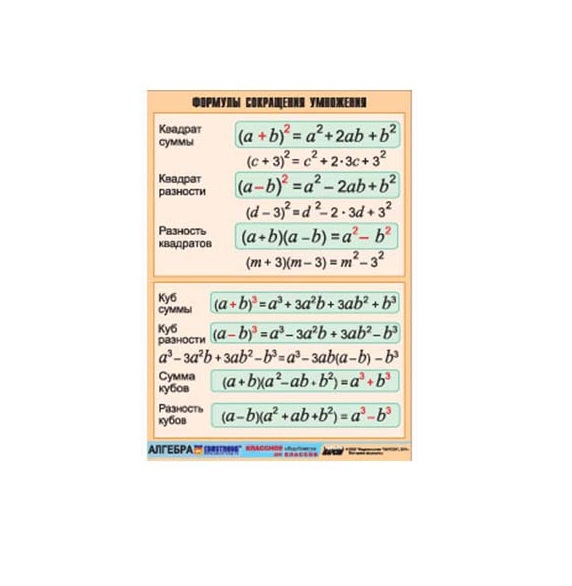 ФОРМУЛЫ СОКРАЩЕНИЯ УМНОЖЕНИЯ
Квадрат
суммы
(a + b)² = a² + 2ab + b²
(c + 3)² = c² + 2·3c + 3²
Квадрат
разности
(a − b)² = a² − 2ab + b²
(d − 3)² = d² − 2·3d + 3²
Разность
квадратов
(a+b)(a − b) = a² − b²
(m + 3)(m − 3) = m² − 3²
Куб
суммы
(a+b)³ = a³ + 3a²b + 3ab² + b³
Куб
разности
(a − b)³ = a³ − 3a²b + 3ab² − b³
a³ − 3a²b + 3ab² − b³ = a³ − 3ab(a − b) − b³
Сумма
кубов
(a+b)(a² − ab + b²) = a³ + b³
Разность
кубов
(a − b)(a² + ab + b²) = a³ − b³
АЛГЕБРА
КЛАССНОЕ